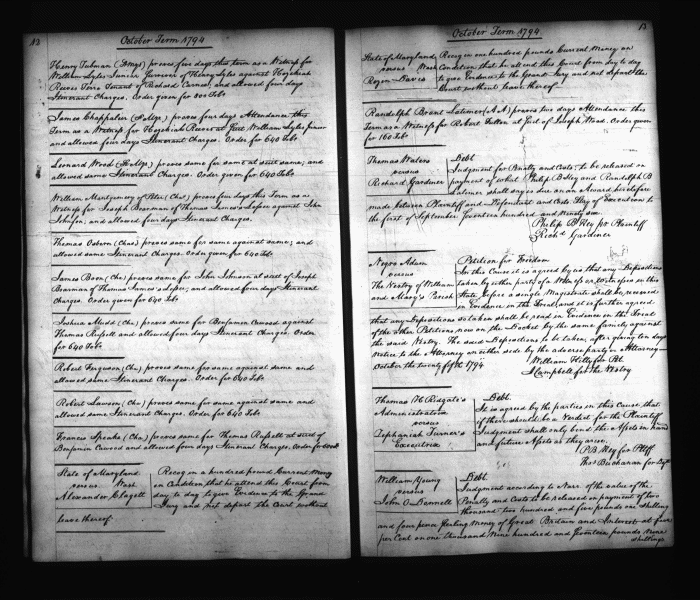 12
October Term 1794
Henry Tubman (PMgs) proves five days this term as a Witness for
William Lyles Junior Survivor of Henry Lyles against Hezekiah
Reeves Terre Tenant of Richard Carnes, and allowed four days
Itinerant Charges. Order given for 800 Tobo
James Chappalier (PMgs) proves four days Attendance this
Term as a Witness for Hezekiah Reeves at suit William Lyles Junior
and allowed four days Itinerant Charges. Order for 640 Tobo
Leonard Wood (PMgs) proves same for same at suit same; and
allowed same Itinerant Charges. Order given for 640 Tobo
William Montgomery of Peter (Cha) proves four days this Term as a
Witness for Joseph Boarman of Thomas James's Lessee against John
Johnson; and allowed four days Itinerant Charges.
Thomas Osborn (Cha) proves same for same against same; and
allowed same Itinerant Charges. Order given for 640 Tobo
James Born (Cha) proves same for John Johnson at suit of Joseph
Boarman of Thomas James's Lessee; and allowed four days Itinerant
Charges. Order given for 640 Tobo
Joshua Mudd (Cha) proves same for Benjamin Cawood against
Thomas Russell and allowed four days Itinerant Charges. Order
for 640 Tobo
Robert Ferguson (Cha) proves same for same against same and
allowed same Itinerant Charges. Order for 640 Tobo
Robert Lawson (Cha) proves same for same against same and
allowed same Itinerant Charges. Order for 640 Tobo
Francis Speake (Cha) proves same for Thomas Russell at suit of
Benjamin Cawood and allowed four days Itinerant Charges. Order for
State of Maryland Recog in a hundred pounds Current Money
versus Wash on Condition that he attend this Court from
Alexander Clagett day to day to give Evidence to the Grand
Jury and not depart the Court without
leave thereof
13
October Term 1794
State of Maryland Recog in one hundred pounds Current Money on
versus Wash Condition that he attend this Court from day to day
Rogen Davis to give Evidence to the Grand Jury and not depart the
Court without leave thereof
Randolph Brant Latimer (AA) proves two days Attendance this
Term as a Witness for Robert at suit of Joseph Wood. Order given
for 160 Tobo
Thomas Waters Debt
versus Judgment for Penalty and Costs, to be released on
Richard Gardiner payment of what Philip B Key and Randolph B
Latimer shall say is due on an Award heretofore
made between Plaintiff and Defendant and Costs. Stay of Execution to
the first of September Seventeen hundred and Ninety six
Philip B Key for Plaintiff
Richd Gardiner
Negro Adam Petition for Freedom
versus In this Cause it is agreed by us that any Depositions
The Vestry of William taken by either party of a Witness or Witnesses in this
and Mary's Parish State before a single Magistrate shall be received
in Evidence in the Trial, and it is further agreed
that any Depositions so taken shall be read in Evidence on the Trial
of the other Petitions, now on the Docket by the same family against
the said Vestry. The said Depositions to be taken, after giving ten days
Notice to the Attorney on either side by the adverse party or Attorney
October the twenty fifth 1794 William Kilty for Pet.
J Campbell for the Vestry
Thomas H Ridgate's Debt.
Administrators It is agreed by the parties in this Cause, that
versus if there should be a Verdict for the Plaintiff
Zephaniah Turner's Judgment shall only bind the Assets in hand
Executrix and future Assets as they arise.
P B Key for Plff
Thos Buchanan for Deft
William Young Debt
versus Judgment according to Narr. of the value of the
John O Dannell Penalty and Costs to be released on payment of two
thousand two hundred and five pounds one shilling
and four pence Sterling Money of Great Britain and Interest at five
per Cent on one thousand Nine hundred and Seventeen pounds Nine
shillings